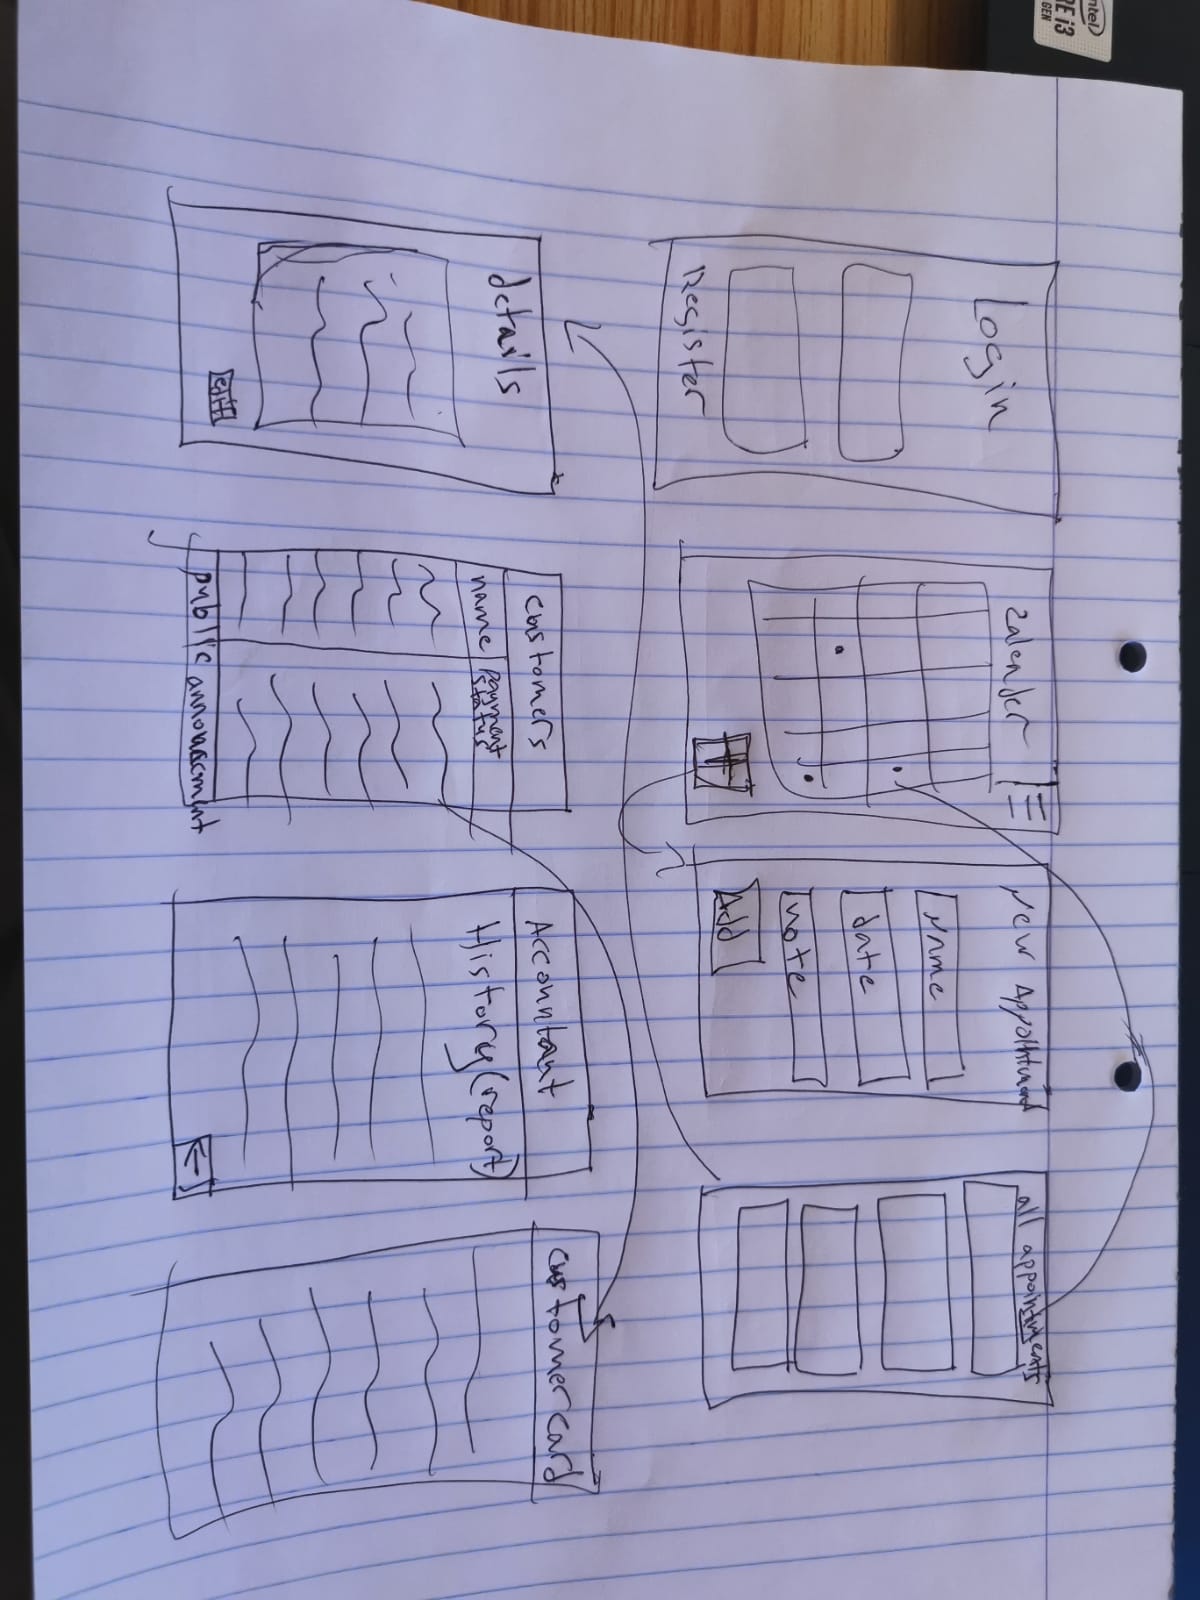 intel
CORE i3
GEN
Login
Register
Zalender
New Appointment
Name
date
note
Add
all appointments
details
edit
Customers
name
payment
status
public annoucment
Accountant
History (report)
Customer card